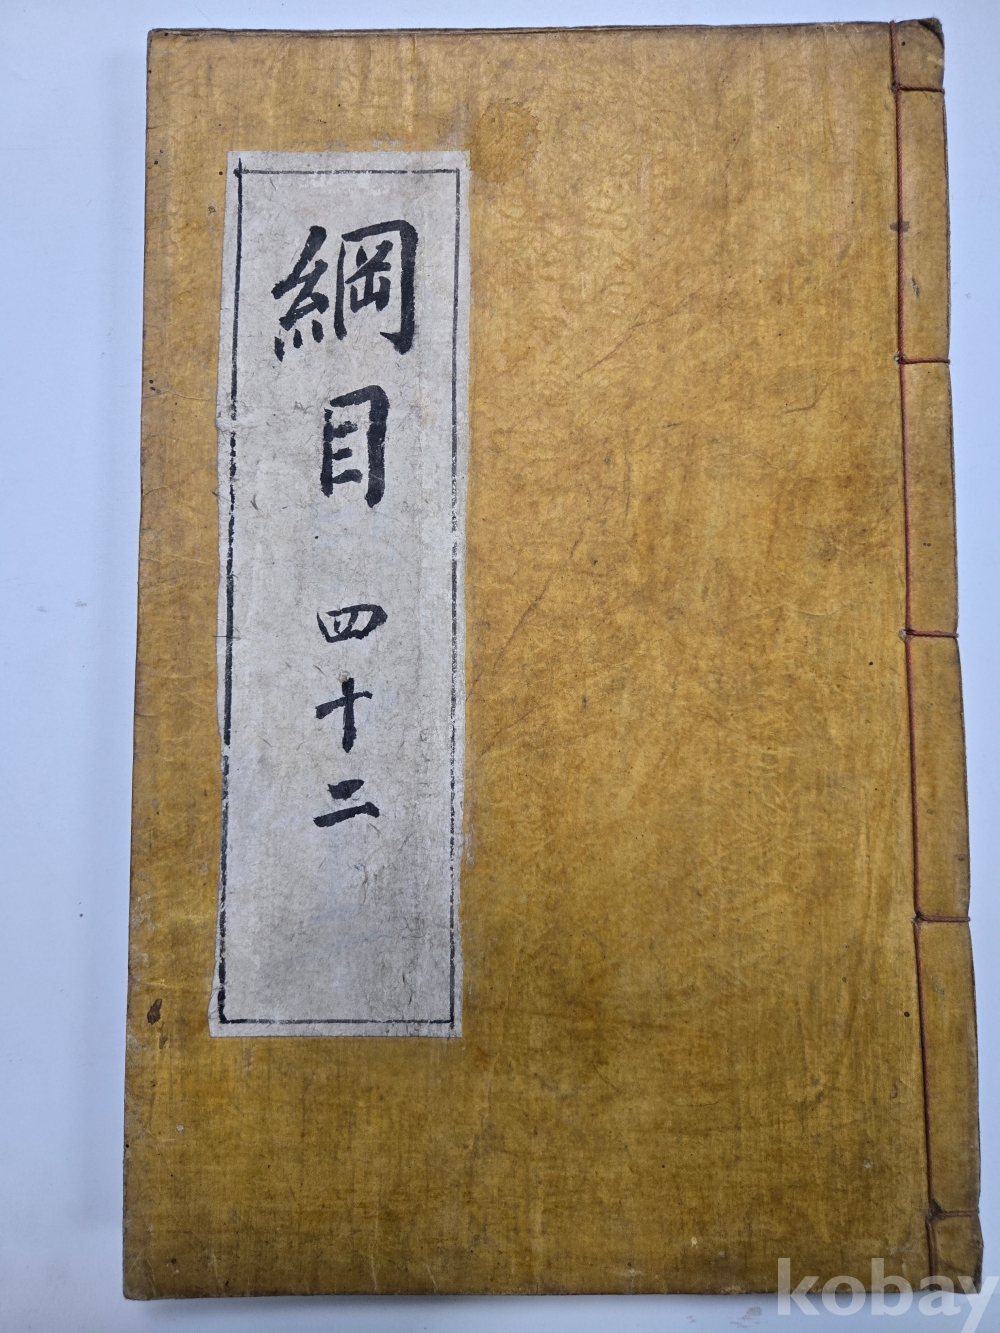 綱目 四十二
kobay